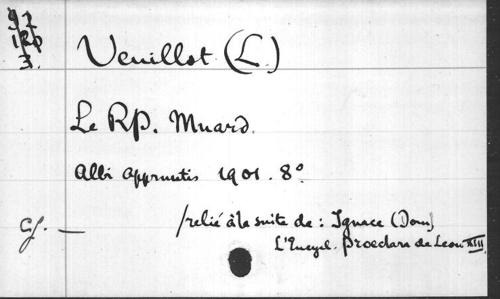 92
120
3.
Veuillot (L.)
Le RP. Muard.
Albi Apprentis 1901. 8°
Cf. —
/relié à la suite de : Ignace (Dom)
L'Encycl. Praeclara de Léon XIII